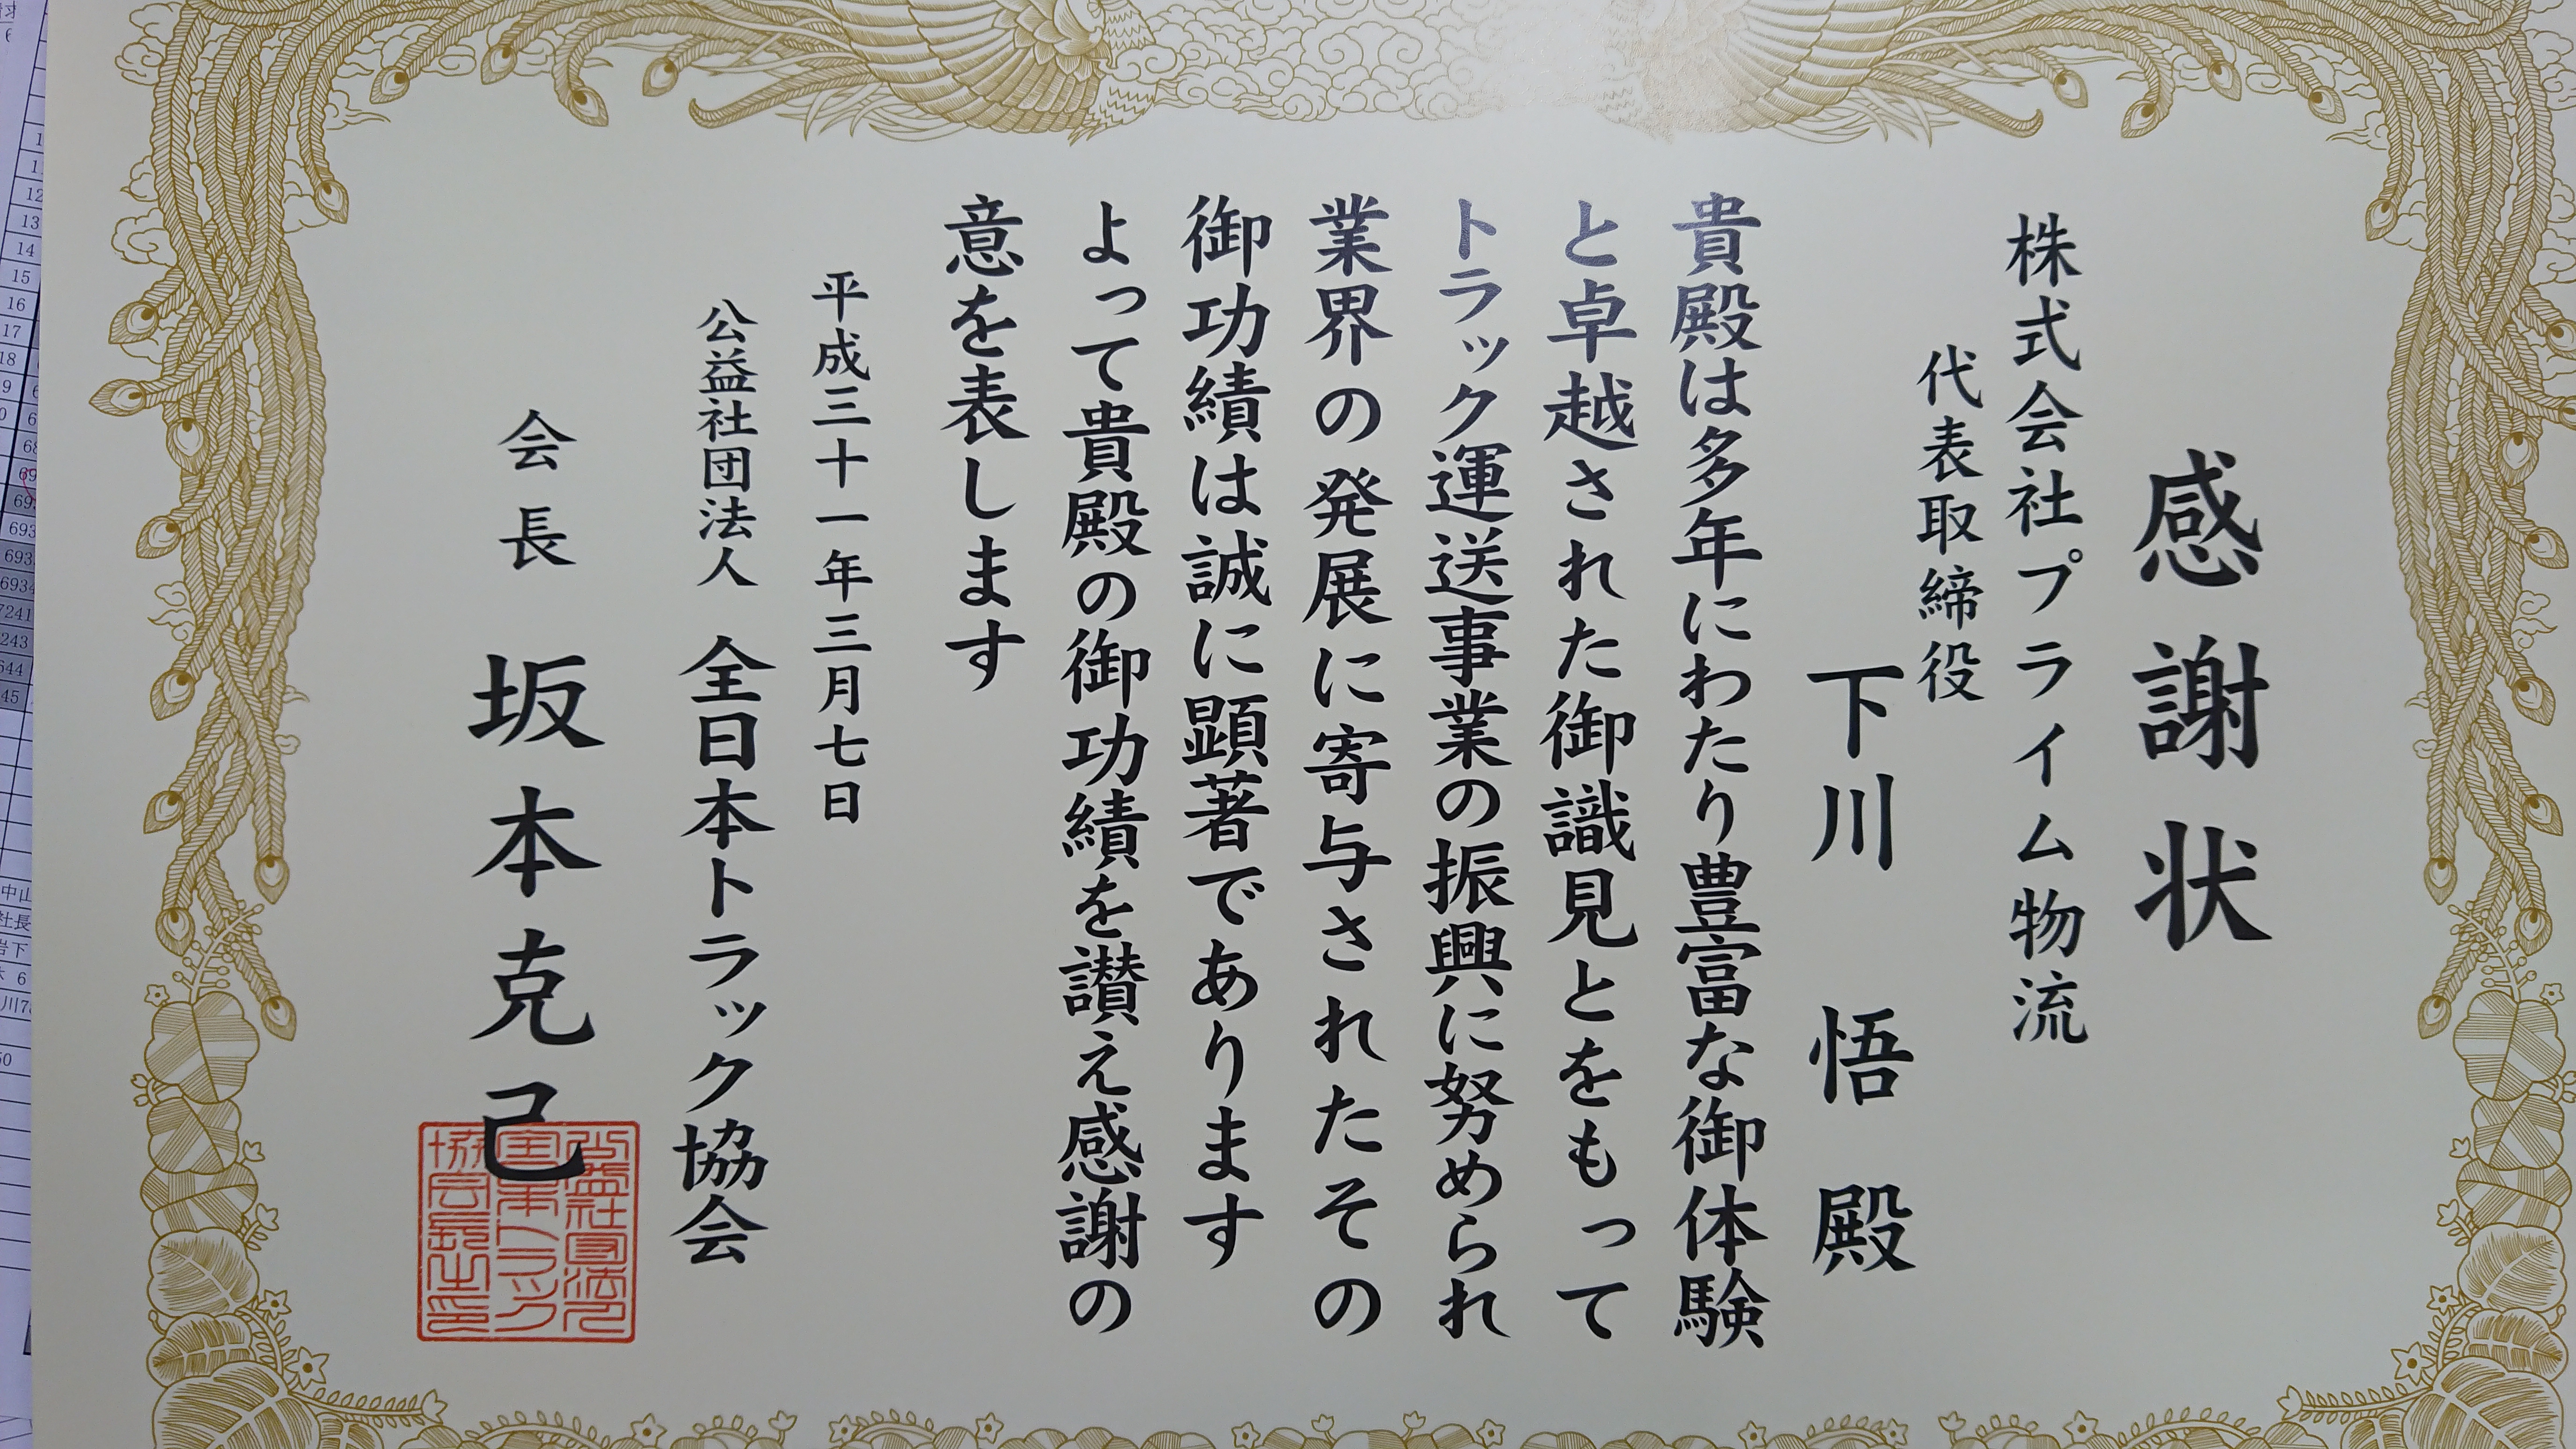 感謝状
株式会社プライム物流
代表取締役
下川 悟 殿
貴殿は多年にわたり豊富な御体験
と卓越された御識見とをもって
トラック運送事業の振興に努められ
業界の発展に寄与されたその
御功績は誠に顕著であります
よって貴殿の御功績を讃え感謝の
意を表します
平成三十一年三月七日
公益社団法人 全日本トラック協会
会長 坂本克己
公益社団法人
全日本トラック
協会長之印
12
13
14
15
16
17
693
693
6934
7241
243
644
45
中山
社長
岩下